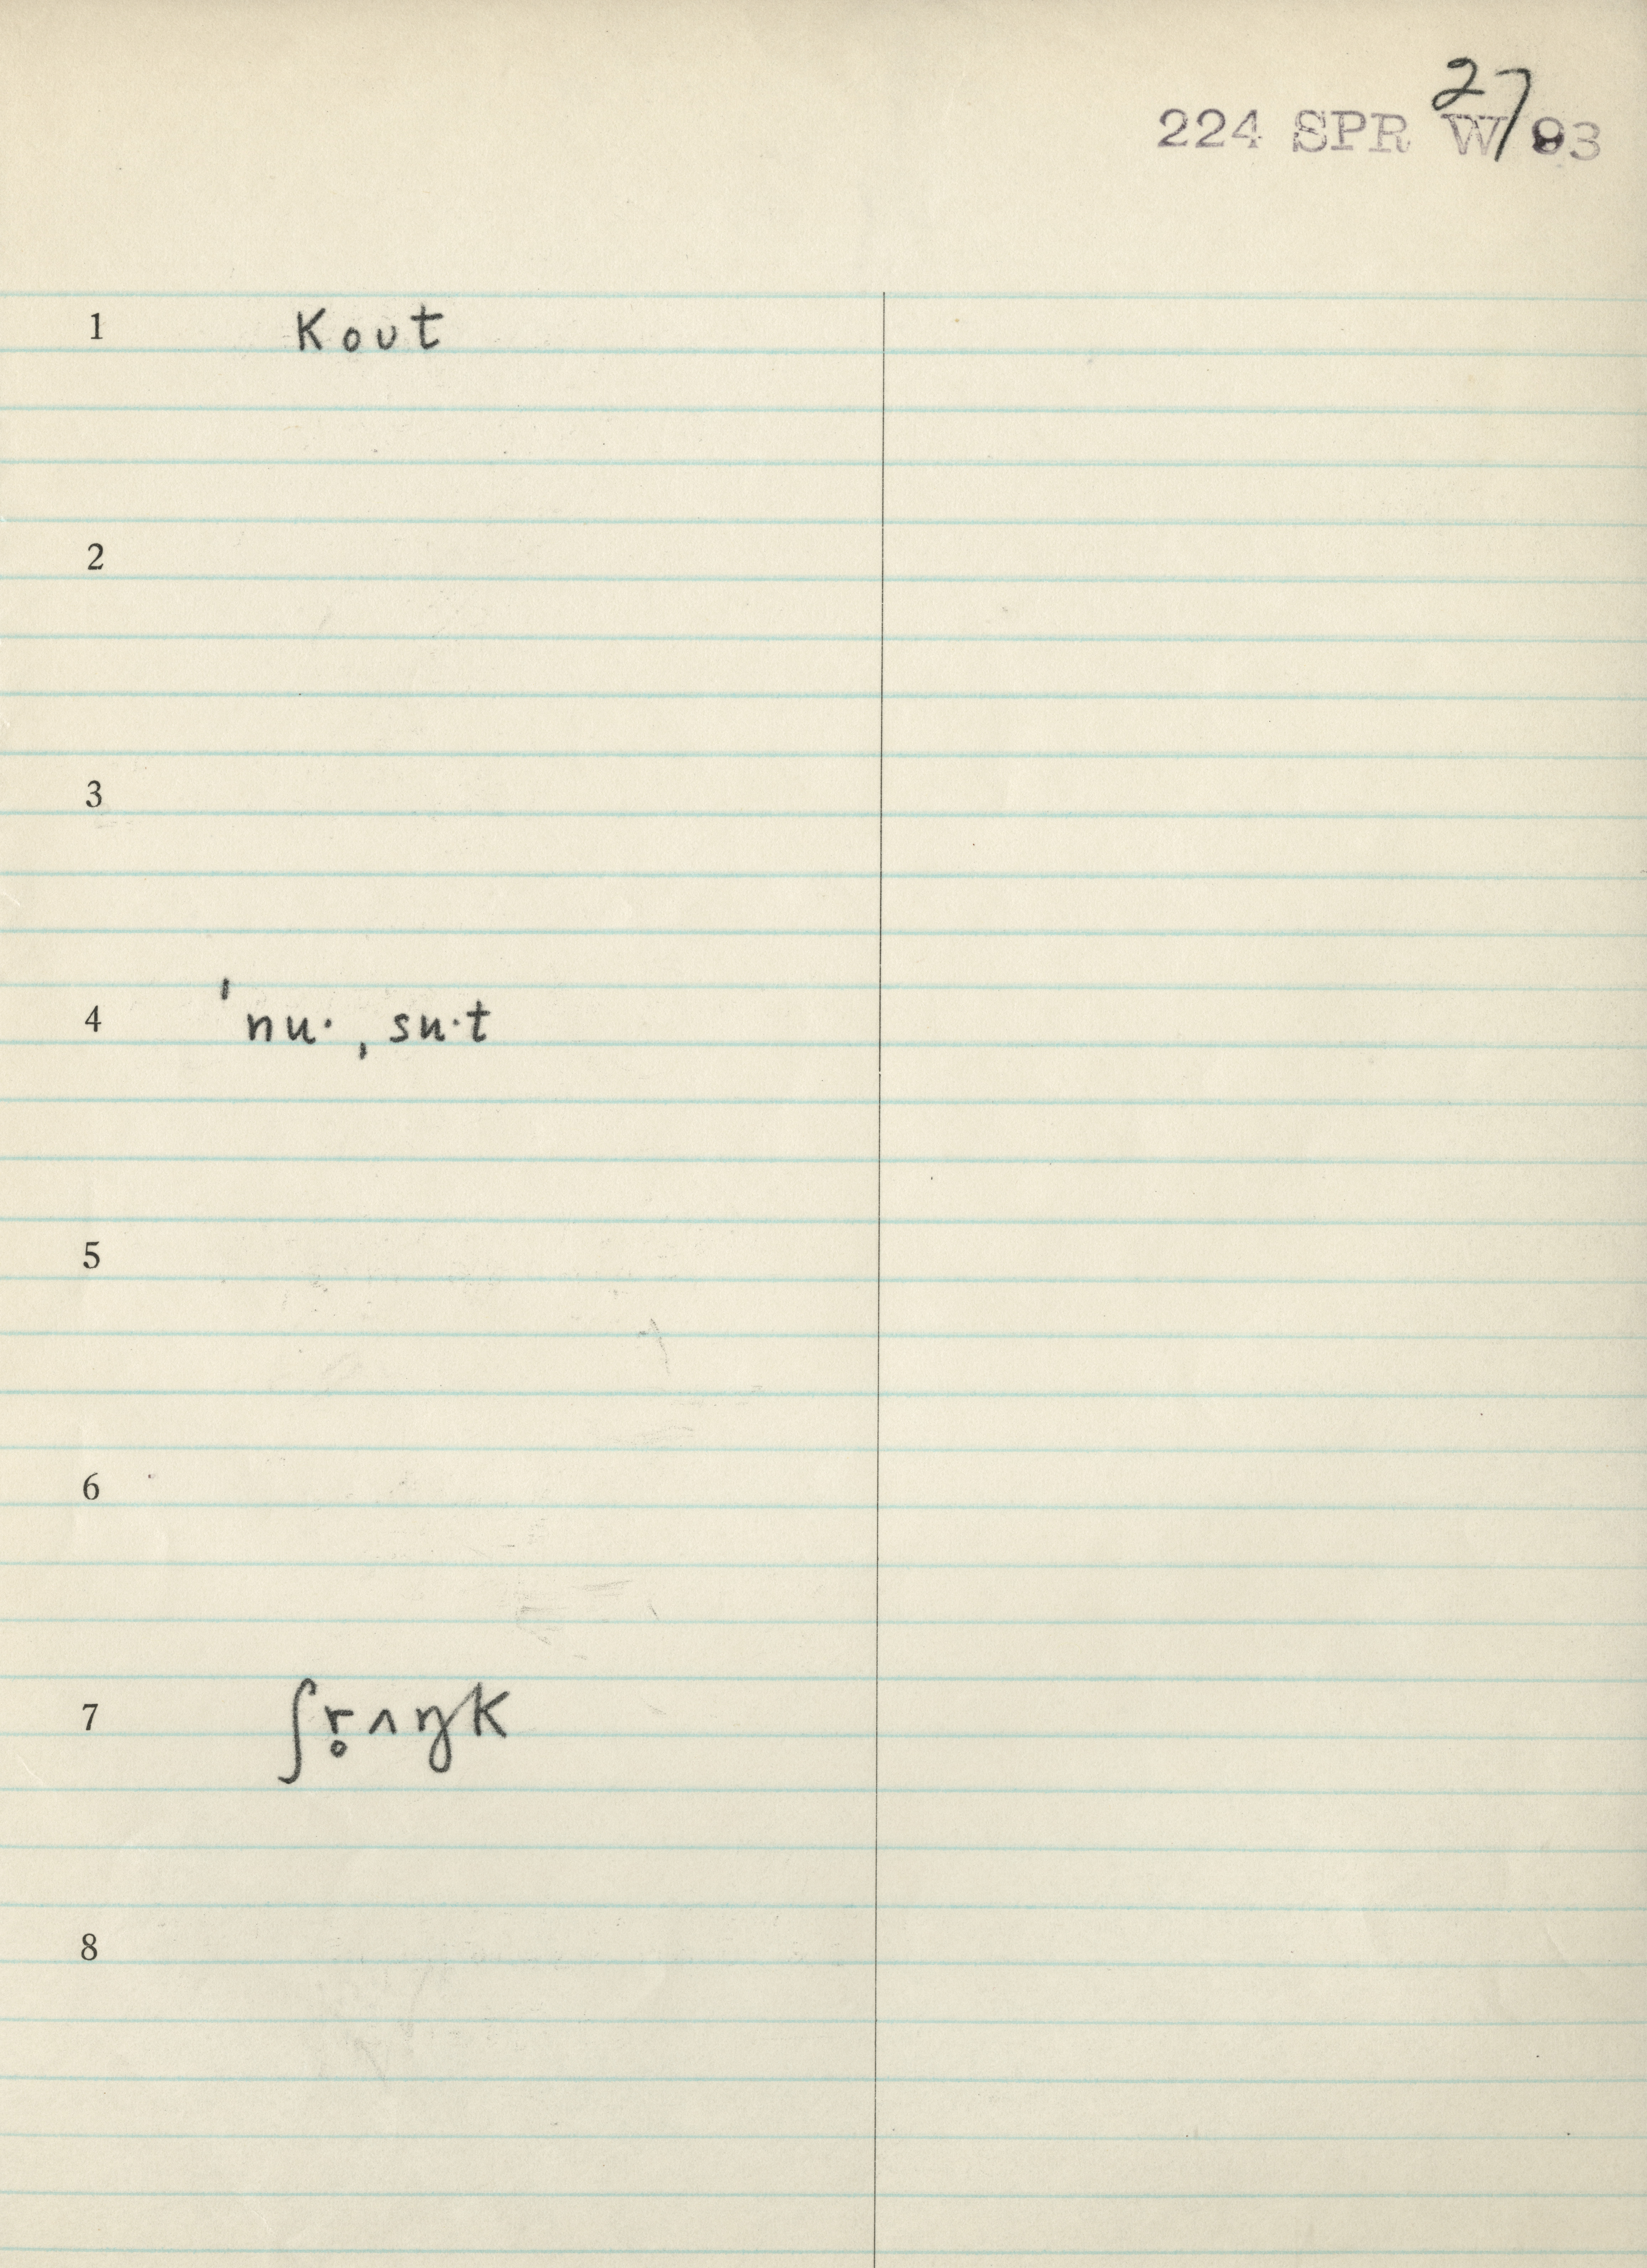 27
224 SPR W 93
1 kout
2
3
4 ˈnu· ˌsu·t
5
6
7 ʃr̥ʌŋk
8